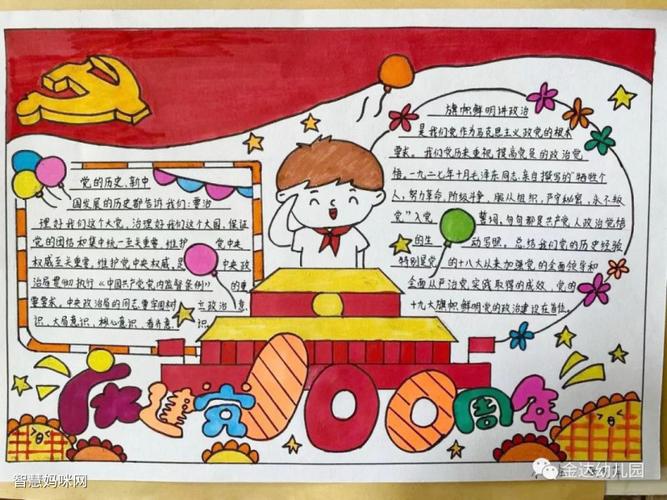 党的历史、新中
国发展的历史都告诉我们:要治
理好我们这个大党,治理好我们这个大国,保证
党的团结和集中统一至关重要,维护党中央
权威至关重要,维护党中央权威,是中央政
治局贯彻执行《中国共产党党内监督条例》的重
要要求。中央政治局的同志要牢固树立政治意
识、大局意识、核心意识、看齐意识。
旗帜鲜明讲政治
是我们党作为马克思主义政党的根本
要求。我们党历来重视提高党员的政治觉
悟。一九二七年十月毛泽东同志亲自撰写的“牺牲个
人,努力革命,阶级斗争,服从组织,严守秘密,永不叛
党”入党誓词,句句都是共产党人政治觉悟
的生动写照。总结我们党的历史经验
特别是党的十八大以来加强党的全面领导和
全面从严治党实践取得的成效,党的
十九大旗帜鲜明党的政治建设在首位。
庆建党100周年
智慧妈咪网
金达幼儿园